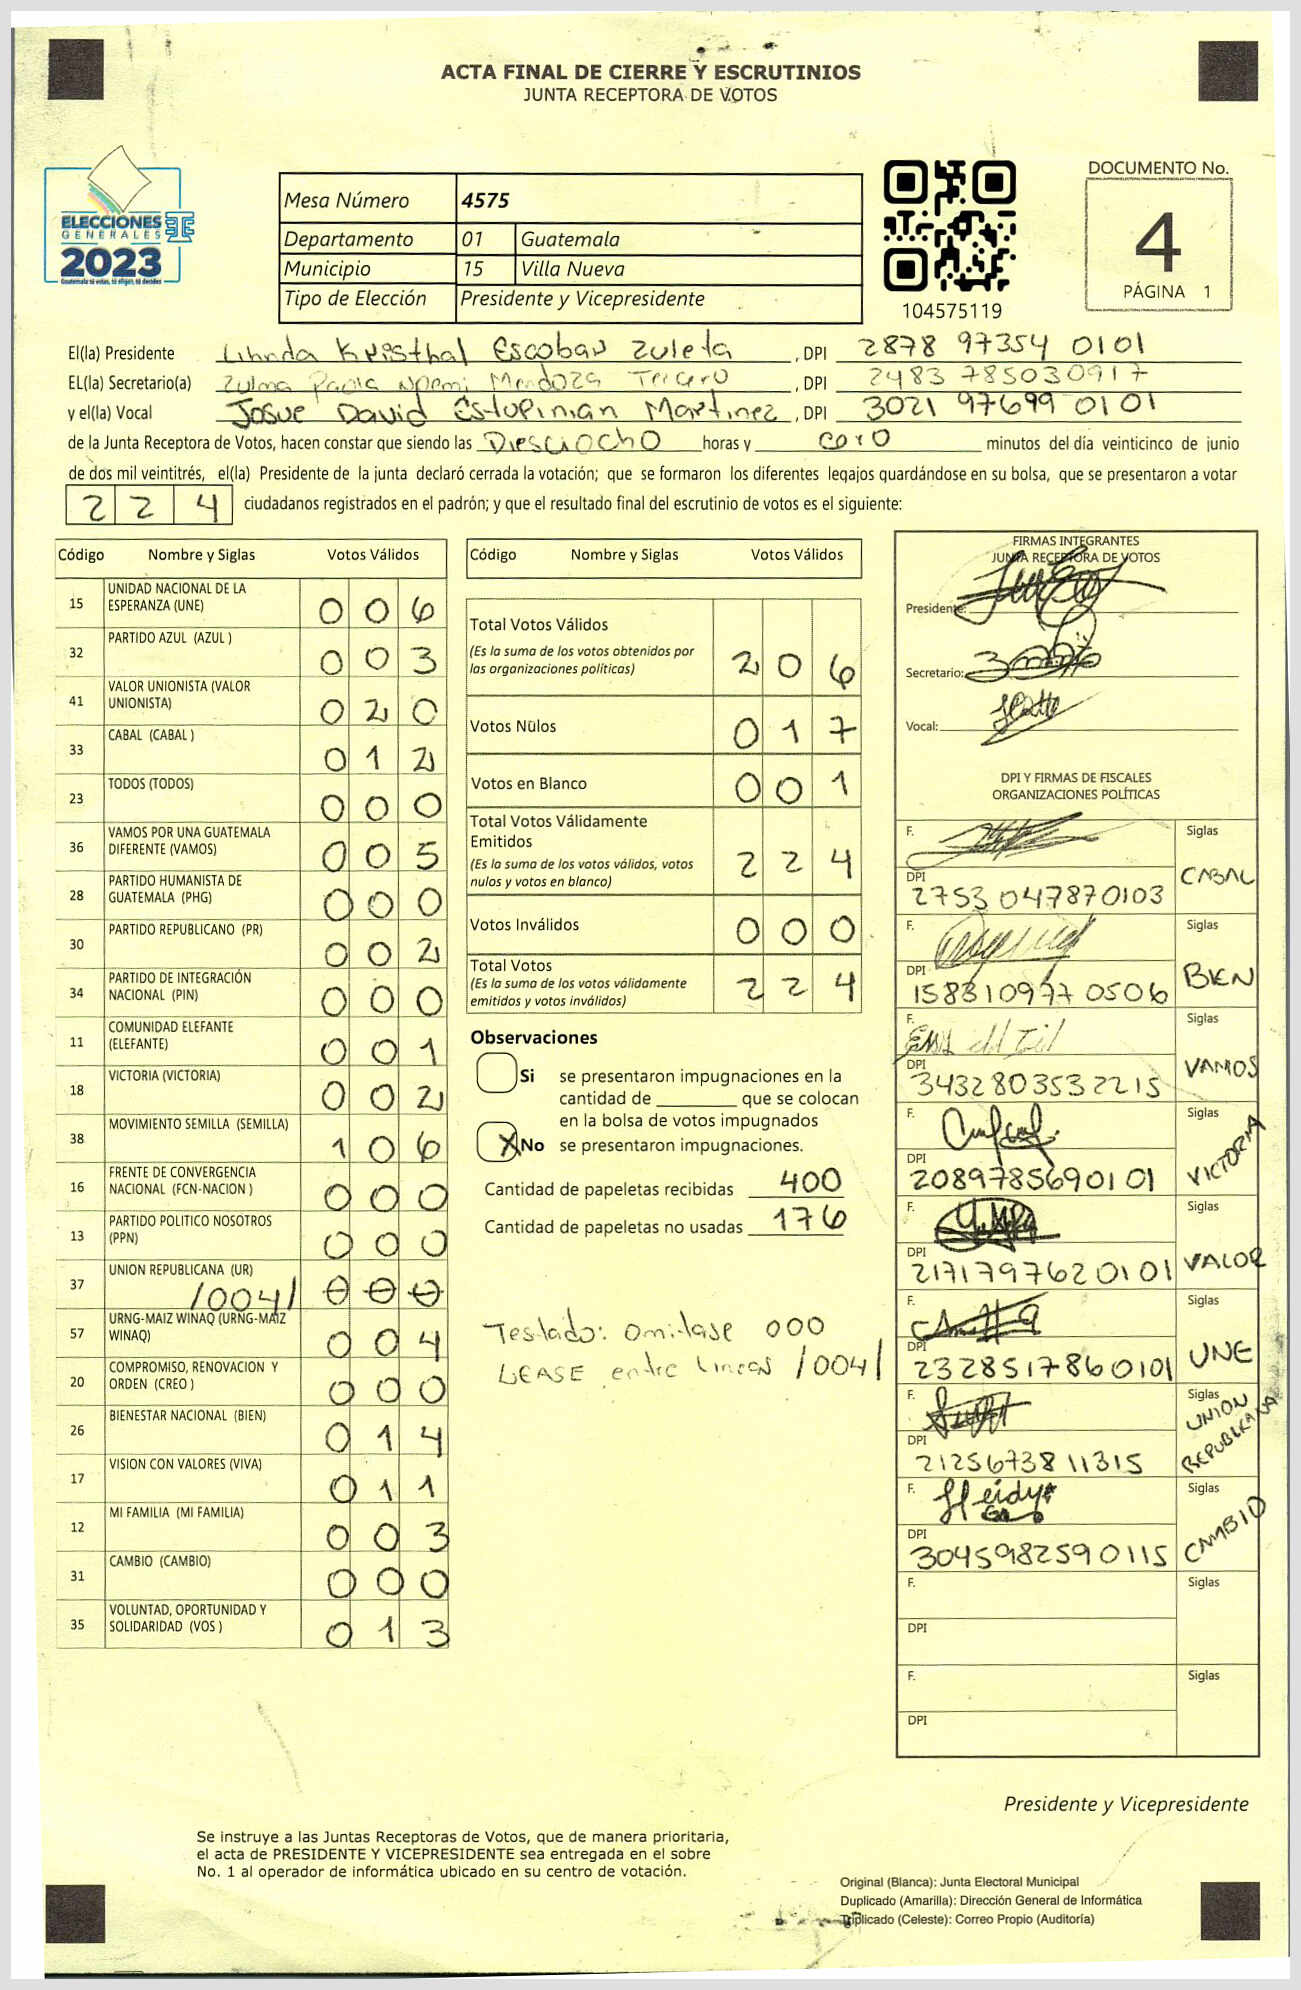 ACTA FINAL DE CIERRE Y ESCRUTINIOS
JUNTA RECEPTORA DE VOTOS
ELECCIONES
GENERALES
2023
Guatemala tú votas, tú eliges, tú decides
Mesa Número 4575
Departamento 01 Guatemala
Municipio 15 Villa Nueva
Tipo de Elección Presidente y Vicepresidente
104575119
DOCUMENTO No.
4
PÁGINA 1
El(la) Presidente Lihnda Kristhal Escobar Zuleta , DPI 2878 97354 0101
EL(la) Secretario(a) Zulma Paola Noemi Mendoza Tercero , DPI 2483 785030917
y el(la) Vocal Josue David Estupinian Martinez , DPI 3021 97699 0101
de la Junta Receptora de Votos, hacen constar que siendo las Diesciocho horas y cero minutos del día veinticinco de junio
de dos mil veintitrés, el(la) Presidente de la junta declaró cerrada la votación; que se formaron los diferentes legajos quardándose en su bolsa, que se presentaron a votar
2 2 4 ciudadanos registrados en el padrón; y que el resultado final del escrutinio de votos es el siguiente:
Código Nombre y Siglas Votos Válidos
15 UNIDAD NACIONAL DE LA
ESPERANZA (UNE) 0 0 6
32 PARTIDO AZUL (AZUL ) 0 0 3
41 VALOR UNIONISTA (VALOR
UNIONISTA) 0 2 0
33 CABAL (CABAL ) 0 1 2
23 TODOS (TODOS) 0 0 0
36 VAMOS POR UNA GUATEMALA
DIFERENTE (VAMOS) 0 0 5
28 PARTIDO HUMANISTA DE
GUATEMALA (PHG) 0 0 0
30 PARTIDO REPUBLICANO (PR) 0 0 2
34 PARTIDO DE INTEGRACIÓN
NACIONAL (PIN) 0 0 0
11 COMUNIDAD ELEFANTE
(ELEFANTE) 0 0 1
18 VICTORIA (VICTORIA) 0 0 2
38 MOVIMIENTO SEMILLA (SEMILLA) 1 0 6
16 FRENTE DE CONVERGENCIA
NACIONAL (FCN-NACION ) 0 0 0
13 PARTIDO POLITICO NOSOTROS
(PPN) 0 0 0
37 UNION REPUBLICANA (UR) 0 0 0
/004/
57 URNG-MAIZ WINAQ (URNG-MAIZ
WINAQ) 0 0 4
20 COMPROMISO, RENOVACION Y
ORDEN (CREO ) 0 0 0
26 BIENESTAR NACIONAL (BIEN) 0 1 4
17 VISION CON VALORES (VIVA) 0 1 1
12 MI FAMILIA (MI FAMILIA) 0 0 3
31 CAMBIO (CAMBIO) 0 0 0
35 VOLUNTAD, OPORTUNIDAD Y
SOLIDARIDAD (VOS ) 0 1 3
Código Nombre y Siglas Votos Válidos
Total Votos Válidos
(Es la suma de los votos obtenidos por
las organizaciones políticas) 2 0 6
Votos Nulos 0 1 7
Votos en Blanco 0 0 1
Total Votos Válidamente
Emitidos
(Es la suma de los votos válidos, votos
nulos y votos en blanco) 2 2 4
Votos Inválidos 0 0 0
Total Votos
(Es la suma de los votos válidamente
emitidos y votos inválidos) 2 2 4
Observaciones
Si se presentaron impugnaciones en la
cantidad de ________ que se colocan
en la bolsa de votos impugnados
X No se presentaron impugnaciones.
Cantidad de papeletas recibidas 400
Cantidad de papeletas no usadas 176
Testado: omitase 000
LEASE entre lineas /004/
FIRMAS INTEGRANTES
JUNTA RECEPTORA DE VOTOS
Presidente:
Secretario:
Vocal:
DPI Y FIRMAS DE FISCALES
ORGANIZACIONES POLÍTICAS
F. Siglas
DPI CABAL
2753 047870103
F. Siglas
DPI BIEN
158310977 0506
F. Siglas
DPI VAMOS
3432803532215
F. Siglas
DPI VICTORIA
2089785690101
F. Siglas
DPI VALOR
2171797620101
F. Siglas
DPI UNE
2328517860101
F. Siglas
DPI UNION REPUBLICANA
2125673811315
F. Heidy Siglas
DPI CAMBIO
3045982590115
F. Siglas
DPI
F. Siglas
DPI
Presidente y Vicepresidente
Se instruye a las Juntas Receptoras de Votos, que de manera prioritaria,
el acta de PRESIDENTE Y VICEPRESIDENTE sea entregada en el sobre
No. 1 al operador de informática ubicado en su centro de votación.
Original (Blanca): Junta Electoral Municipal
Duplicado (Amarilla): Dirección General de Informática
Triplicado (Celeste): Correo Propio (Auditoría)